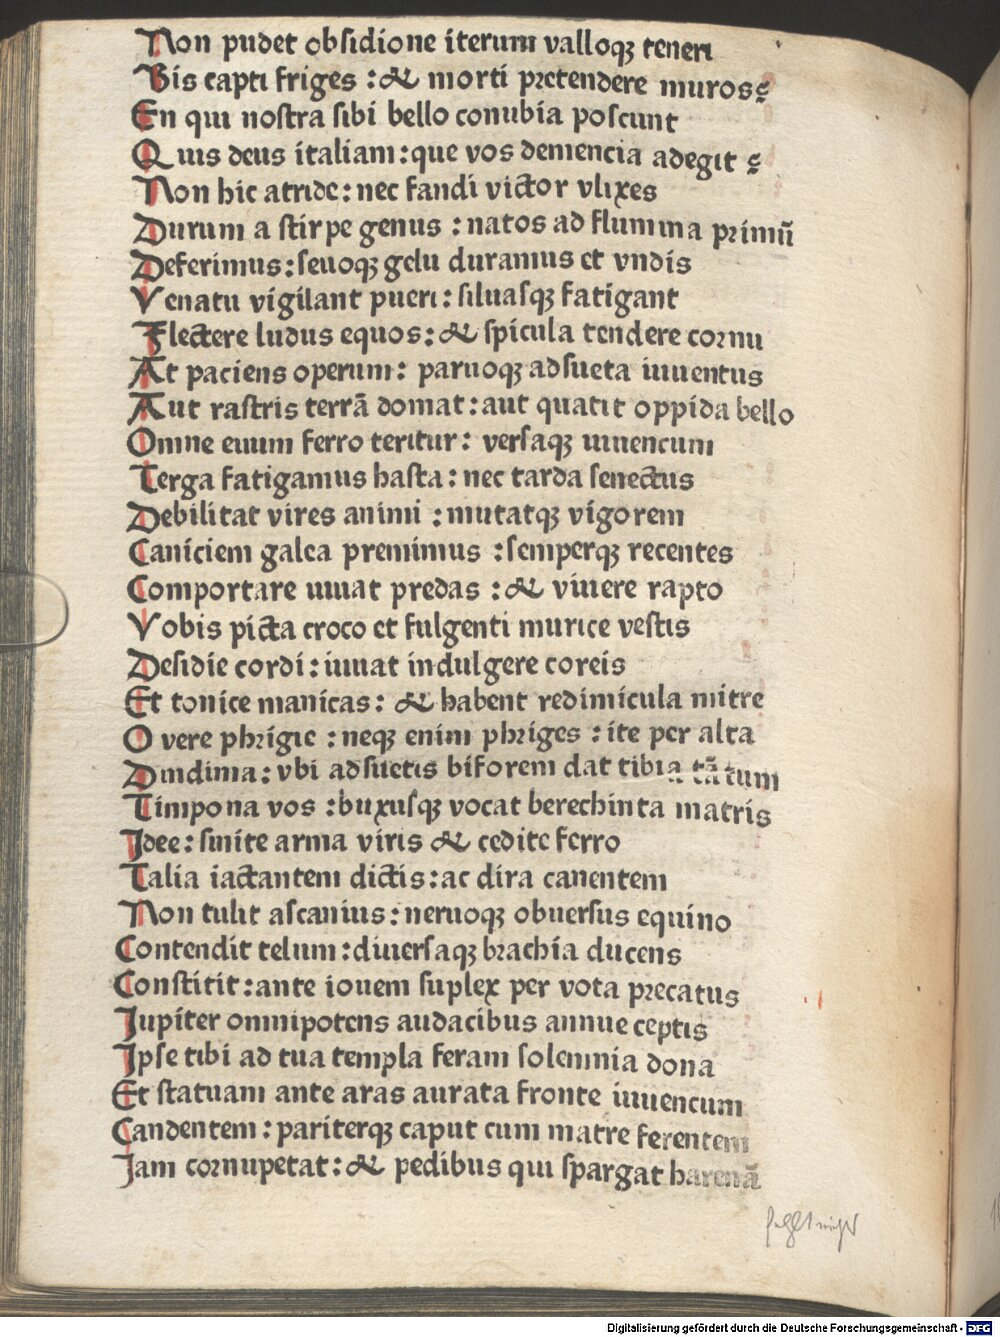 Non pudet obsidione iterum valloqꝫ teneri
Bis capti friges : & morti pretendere muros ?
En qui nostra sibi bello conubia poscunt
Quis deus italiam : que vos demencia adegit ?
Non hic atride : nec fandi victor vlixes
Durum a stirpe genus : natos ad flumina primū
Deferimus : seuoqꝫ gelu duramus et vndis
Venatu vigilant pueri : siluasqꝫ fatigant
Flectere ludus equos : & spicula tendere cornu
At paciens operum : paruoqꝫ adsueta iuuentus
Aut rastris terrā domat : aut quatit oppida bello
Omne euum ferro teritur : versaqꝫ iuuencum
Terga fatigamus hasta : nec tarda senectus
Debilitat vires animi : mutatqꝫ vigorem
Caniciem galea premimus : semperqꝫ recentes
Comportare iuuat predas : & viuere rapto
Vobis picta croco et fulgenti murice vestis
Desidie cordi : iuuat indulgere coreis
Et tonice manicas : & habent redimicula mitre
O vere phrigie : neqꝫ enim phriges : ite per alta
Dindima : vbi adsuetis biforem dat tibia tātum
Timpona vos : buxusqꝫ vocat berechinta matris
Idee : sinite arma viris & cedite ferro
Talia iactantem dictis : ac dira canentem
Non tulit ascanius : neruoqꝫ obuersus equino
Contendit telum : diuersaqꝫ brachia ducens
Constitit : ante iouem suplex per vota precatus
Jupiter omnipotens audacibus annue ceptis
Ipse tibi ad tua templa feram solemnia dona
Et statuam ante aras aurata fronte iuuencum
Candentem : pariterqꝫ caput cum matre ferentem
Jam cornupetat : & pedibus qui spargat harenā
Digitalisierung gefördert durch die Deutsche Forschungsgemeinschaft - DFG